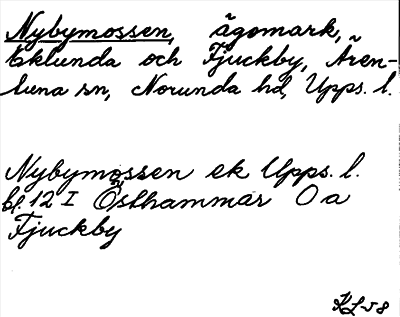 Nybymossen, ägomark,
Eklunda och Fjuckby, Ären-
tuna sn, Norunda hd, Upps. l.
Nybymossen ek Upps. l.
bl. 12 I Östhammar Oa
Fjuckby
KL-58